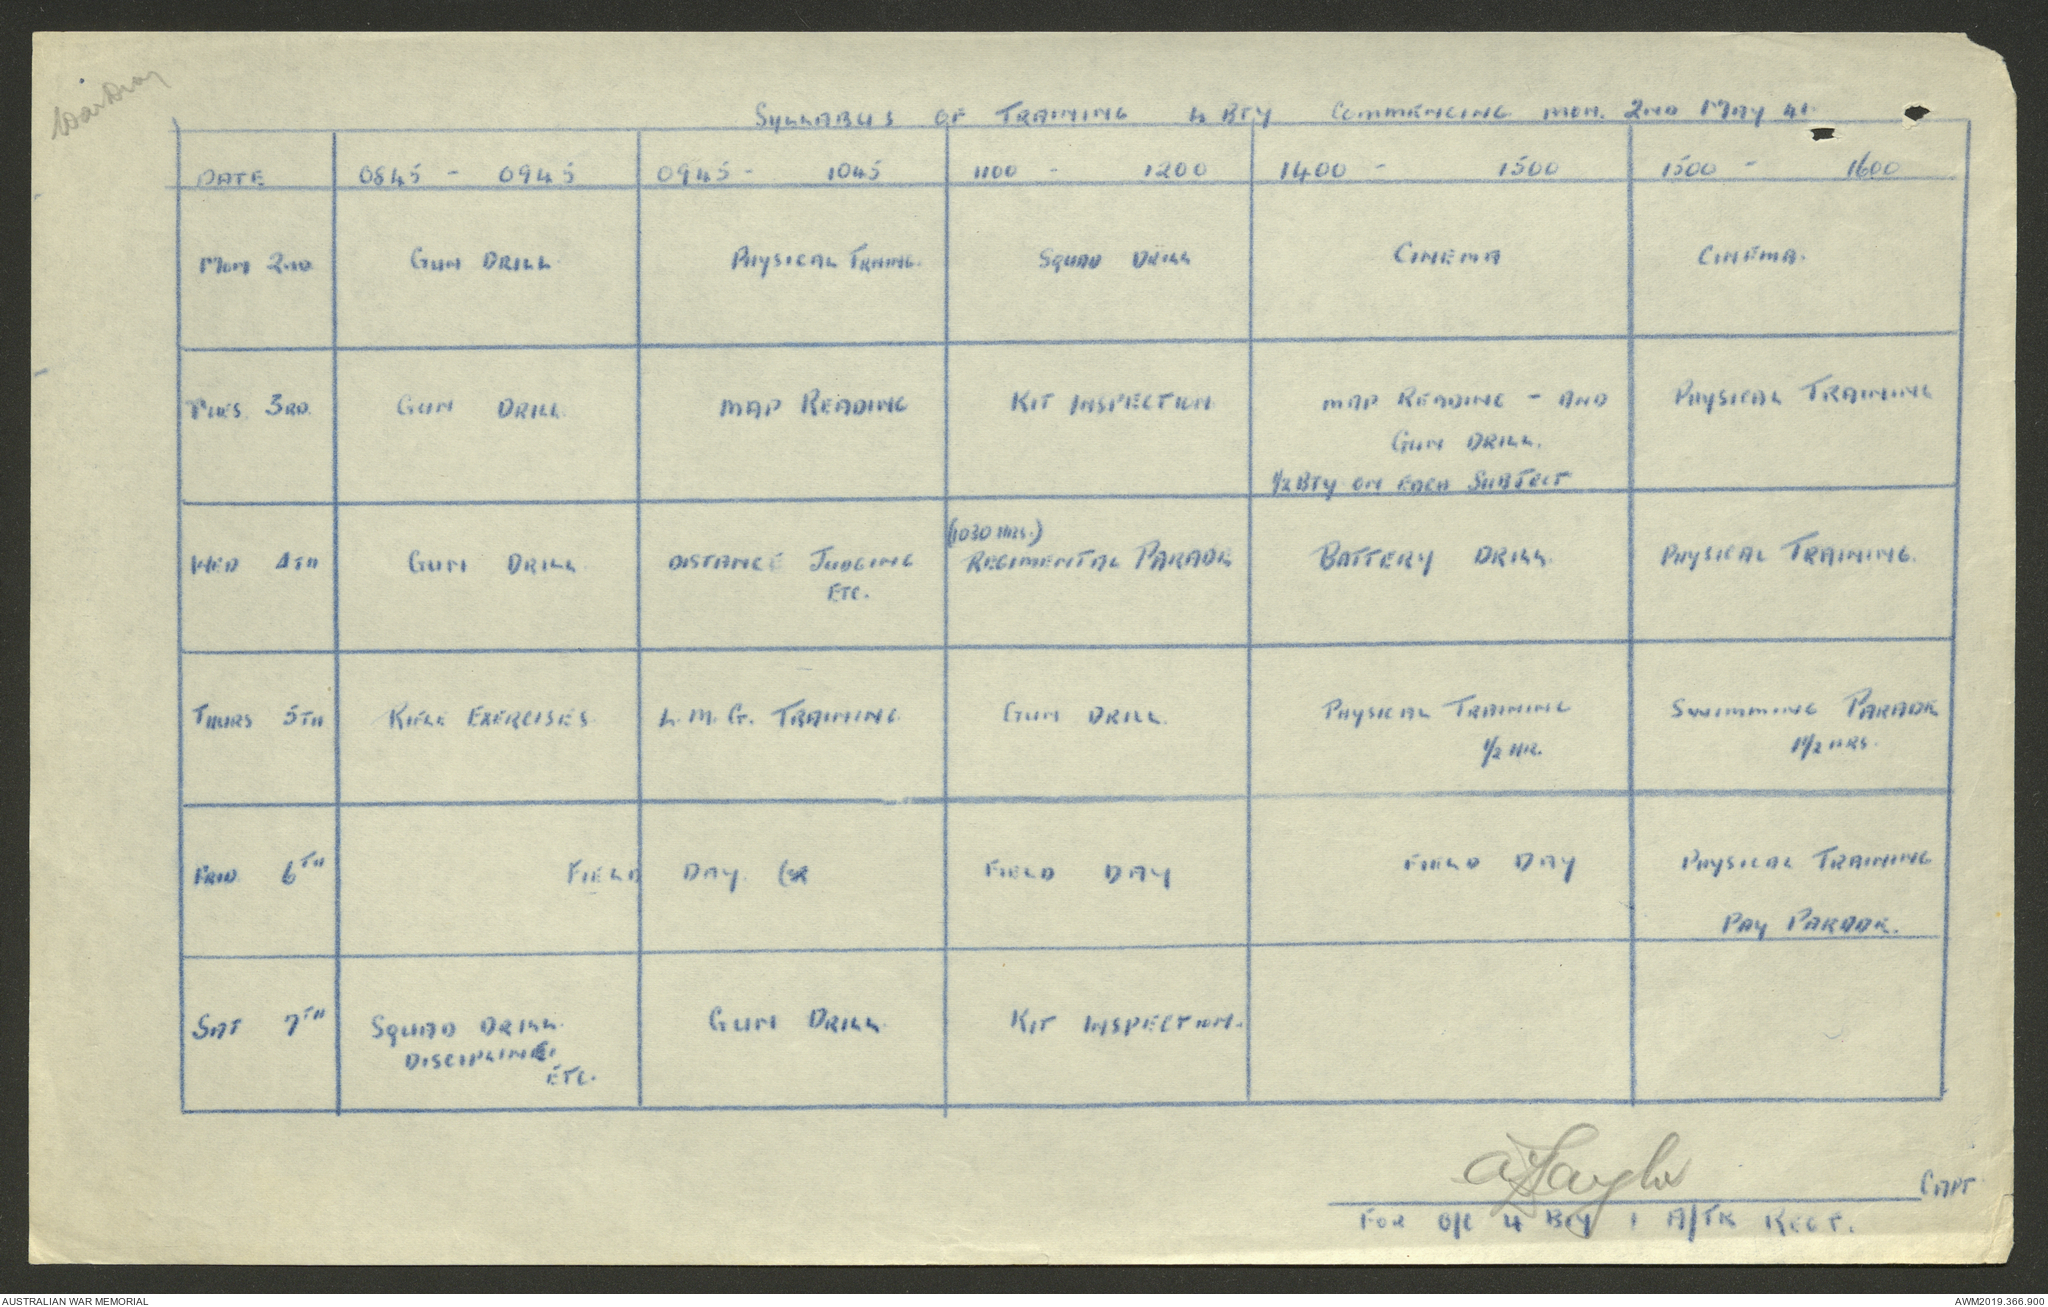 War Diary
SYLLABUS OF TRAINING 4 BTY COMMENCING MON. 2ND MAY 41.
DATE 0845 - 0945 0945 - 1045 1100 - 1200 1400 - 1500 1500 - 1600
MON 2ND GUN DRILL PHYSICAL TRNING. SQUAD DRILL CINEMA CINEMA.
TUES 3RD. GUN DRILL MAP READING KIT INSPECTION MAP READING - AND PHYSICAL TRAINING
GUN DRILL.
1/2 BTY ON EACH SUBJECT
(1030 HRS.)
WED 4TH GUN DRILL DISTANCE JUDGING REGIMENTAL PARADE BATTERY DRILL. PHYSICAL TRAINING.
ETC.
THURS 5TH RIFLE EXERCISES L.M.G. TRAINING GUN DRILL PHYSICAL TRAINING SWIMMING PARADE
1/2 HR. 1 1/2 HRS.
FRID 6TH FIELD DAY FIELD DAY FIELD DAY PHYSICAL TRAINING
PAY PARADE.
SAT 7TH SQUAD DRILL GUN DRILL KIT INSPECTION.
DISCIPLINE.
ETC.
CAPT
FOR O/C 4 BTY 1 A/TK REGT.
AUSTRALIAN WAR MEMORIAL AWM2019.366.900